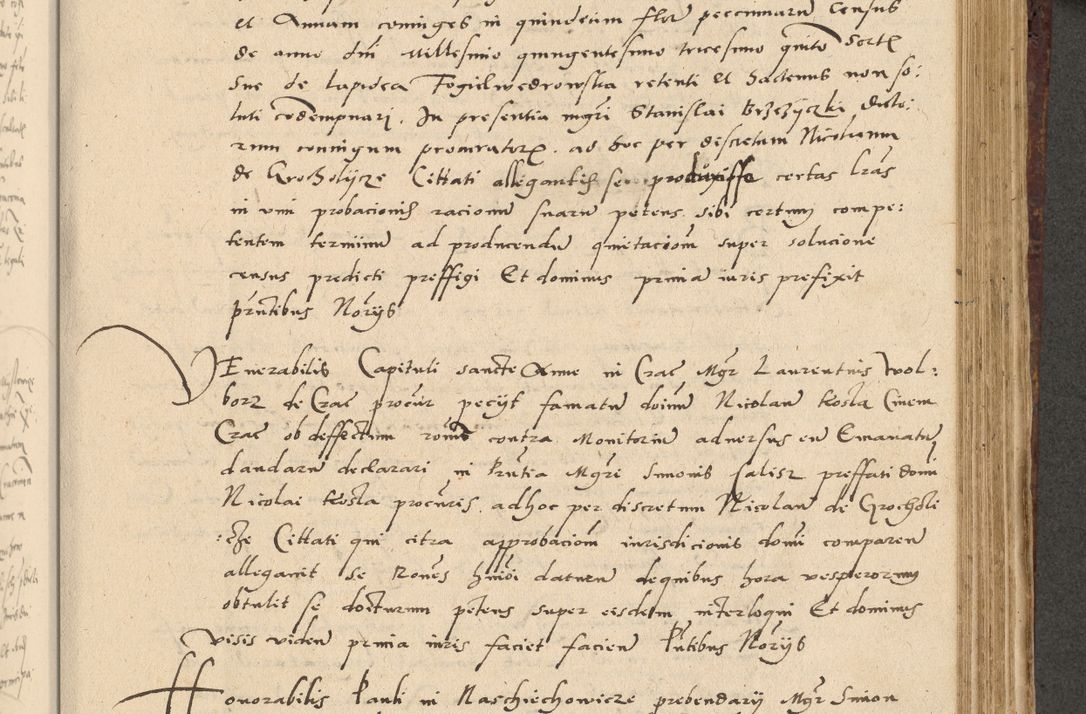 et Annam coniuges in quindecim flor peccuniarū Census
de anno dni Millesimo quingentesimo tricesimo quīto Sortē
Sue de lapidea Fogielwedrowska retenti et hactenus non so:
luti cōdempnari. In presentia mgri Stanislai Brzezÿczki dicto:
rum coniugum procuratorꝭ. ad hoc per discretum Nicolaum
de Grocholÿcze Cittati allegantis se produxisse certas lrās
in vim probacionis racionū suarū petens sibi certum compe:
tentem terminū ad producendū quietacioēm super solucione
census predicti preffigi Et dominus primia iuris prefixit
prūtibus Norÿs
VEnerabilis Capituli sancte Anne in Crac Mgr Laurentius Wol:
borz de Crac procūr pecÿt famatū doinū Nicolaū Kosla Civem
Crac ob deffectum rōnis contra Monitoriū adversus eū Emanatū
dandarū declarari in Prūtia Mgri Simonis Salisz preffati domi
Nicolai Kosla procūris. adhoc per discretum Nicolaū de Grocholi
:cze Cittati qui citra approbacioēm iurisdicionis domi comparen
allegavit se Rones hmōi daturū de quibus hora vesperorum
obtulit se docturum petens super eisdem interloqui Et dominus
visis viden primia iuris faciet facien Prūtibus Norÿs
Honorabilis Pauli in Naschiechowicze prebendarÿ Mgr Simon